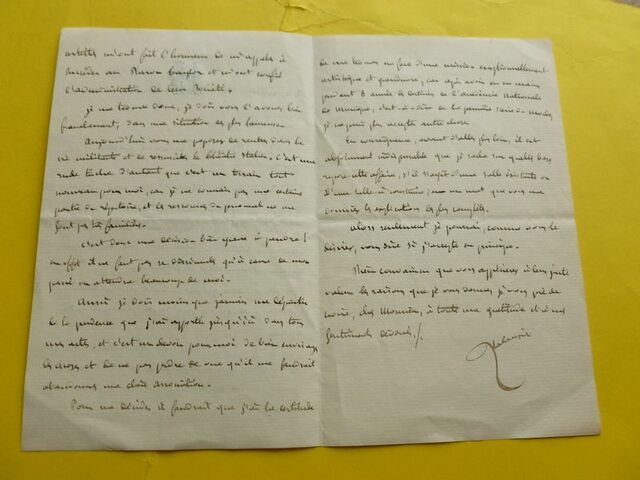 artistes m'ont fait l'honneur de m'appeler à
succéder au Baron Taylor et m'ont confié
l'administration de leur Société.
je me trouve donc, je dois vous l'avouer bien
franchement, dans une situation des plus heureuses.
Aujourd'hui vous me proposez de rentrer dans la
vie militante et de ressusciter le théâtre Italien. C'est une
rude tâche d'autant que c'est un terrain tout
nouveau pour moi, car je ne connais pas une certaine
partie du répertoire, et les ressources du personnel ne me
sont pas très familières.
C'est donc une décision bien grave à prendre !
en effet il ne faut pas se dissimuler qu'à cause de mon
passé on attendra beaucoup de moi.
Aussi je dois moins que jamais me départir
de la prudence que j'ai apportée jusqu'ici dans tous
mes actes, et c'est un devoir pour moi de bien envisager
les choses et de ne pas perdre de vue qu'il me faudrait
abandonner une chère association.
Pour me décider il faudrait que j'aie la certitude
de me trouver en face d'une mission exceptionnellement
artistique et grandiose, car après avoir eu en main
pendant 8 années les destinées de l'Académie Nationale
de Musique, c'est-à-dire de la première scène du monde,
je ne puis plus accepter autre chose.
En conséquence, avant d'aller plus loin, il est
absolument indispensable que je sache sur quelles bases
repose cette affaire, s'il s'agit d'une salle existante ou
d'une salle à construire ; en un mot que vous me
donniez les explications les plus complètes.
alors seulement je pourrai, comme vous le
désirez, vous dire si j'accepte en principe.
Bien convaincu que vous apprécierez à leur juste
valeur les raisons que je vous donne, je vous prie de
croire, cher Monsieur, à toute ma gratitude et à mes
sentiments dévoués ./.